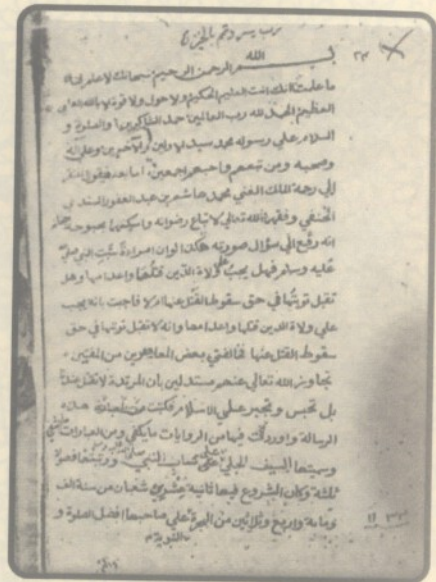 رب يسر وتمم بالخير
٢٣
بسم الله الرحمن الرحيم سبحانك لا علم لنا الا
ما علمتنا انك انت العليم الحكيم ولا حول ولا قوة الا بالله العلي
العظيم الحمد لله رب العالمين حمد الشاكرين والصلوة و
السلام علي رسوله محمد سيد الاولين والآخرين وعلي آله
وصحبه ومن تبعهم واحبهم اجمعين اما بعد فيقول المفتقر
الي رحمة الملك الغني محمد هاشم بن عبد الغفور السندي
الحنفي وفقهما الله تعالي لاتباع رضوانه واسكنهما بحبوحة جنانه
انه رفع الي سؤال صورته هكذا لو ان امرأة سبت النبي صلي الله
عليه وسلم فهل يجب علي ولاة الدين قتلها واعدامها وهل
تقبل توبتها في حق سقوط القتل عنها ام لا فاجبت بانه يجب
علي ولاة الدين قتلها واعدامها وانه لا تقبل توبتها في حق
سقوط القتل عنها فخالفني بعض المعاصرين من المفتين
تجاوز الله تعالي عنهم مستدلين بأن المرتدة لا تقتل عندنا
بل تحبس وتجبر علي الاسلام فكتبت هذه
الرسالة واوردت فيها من الروايات ما يكفي ومن العبارات
وسميتها السيف الجلي علي ساب النبي صلي الله عليه وسلم ورتبتها علي فصول
ثلثة وكان الشروع فيها ثانية عشري شعبان من سنة الف
ومائة واربع وثلاثين من الهجرة علي صاحبها افضل الصلوة و
النبوية